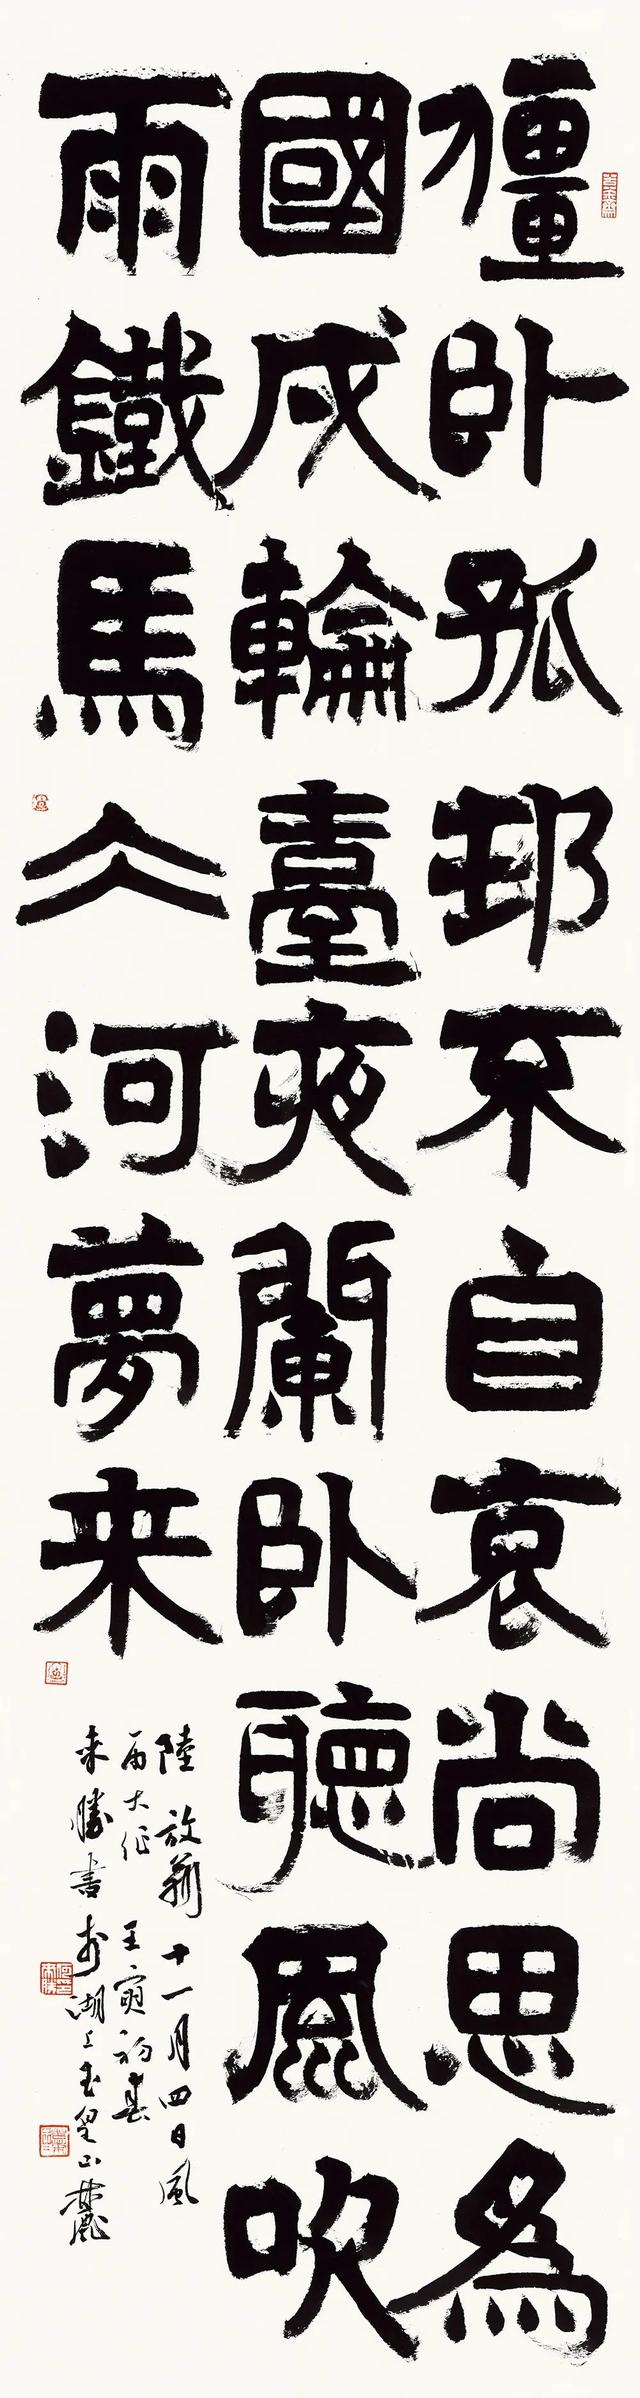 僵卧孤邨不自哀尚思為
國戍輪臺夜闌卧聽風吹
雨鐵馬仌河夢来
陸放翁十一月四日風
雨大作 壬寅初春
来勝書於湖上玉皇山麓